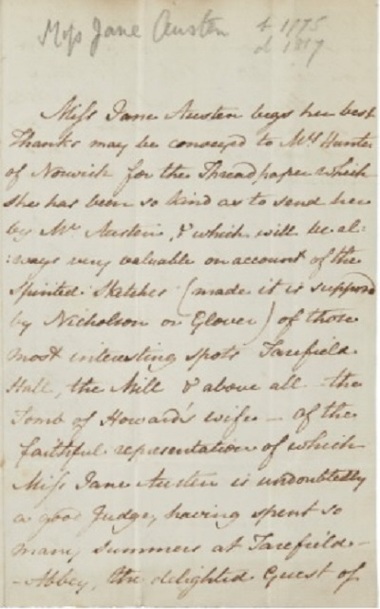 Miss Jane Austen b 1775
d 1817
Miss Jane Austen begs her best
Thanks may be conveyed to Mrs Hunter
of Norwich for the Threadpaper which
she has been so kind as to send her
by Mr Austen, & which will be al:
:ways very valuable on account of the
spirited sketches (made it is supposed
by Nicholson or Glover) of those
most interesting spots Tarefield
Hall, the Mill & above all the
Tomb of Howard's wife – of the
faithful representation of which
Miss Jane Austen is undoubtedly
a good Judge, having spent so
many summers at Tarefield –
– Abbey, the delighted Guest of